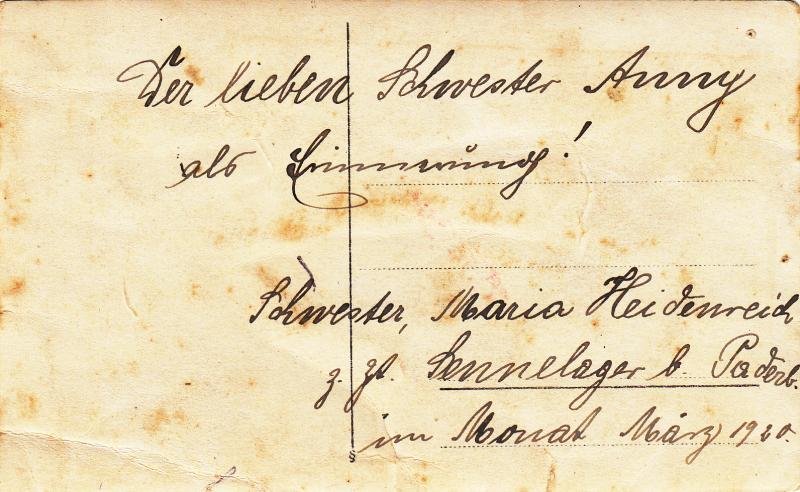 Der lieben Schwester Anny
als Erinnerung!
Schwester, Maria Heidenreich
z. Zt. Sennelager b. Paderb.
im Monat März 1920.